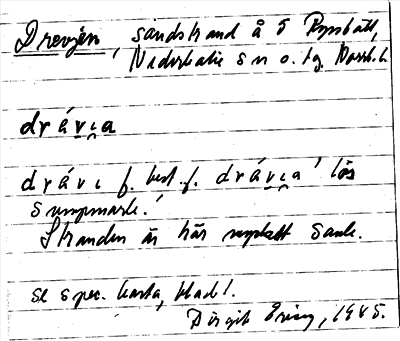 Drevjan, sandstrand å ö Rynbätt,
Nederkalix sn o. tg. Norrb. l.
drávi̯a
drávı f. best. f. drávi̯a 'lös
sumpmark.'
Stranden är här mycket sank.
se spec. karta, blad 1.
Birgit Ering, 1945.